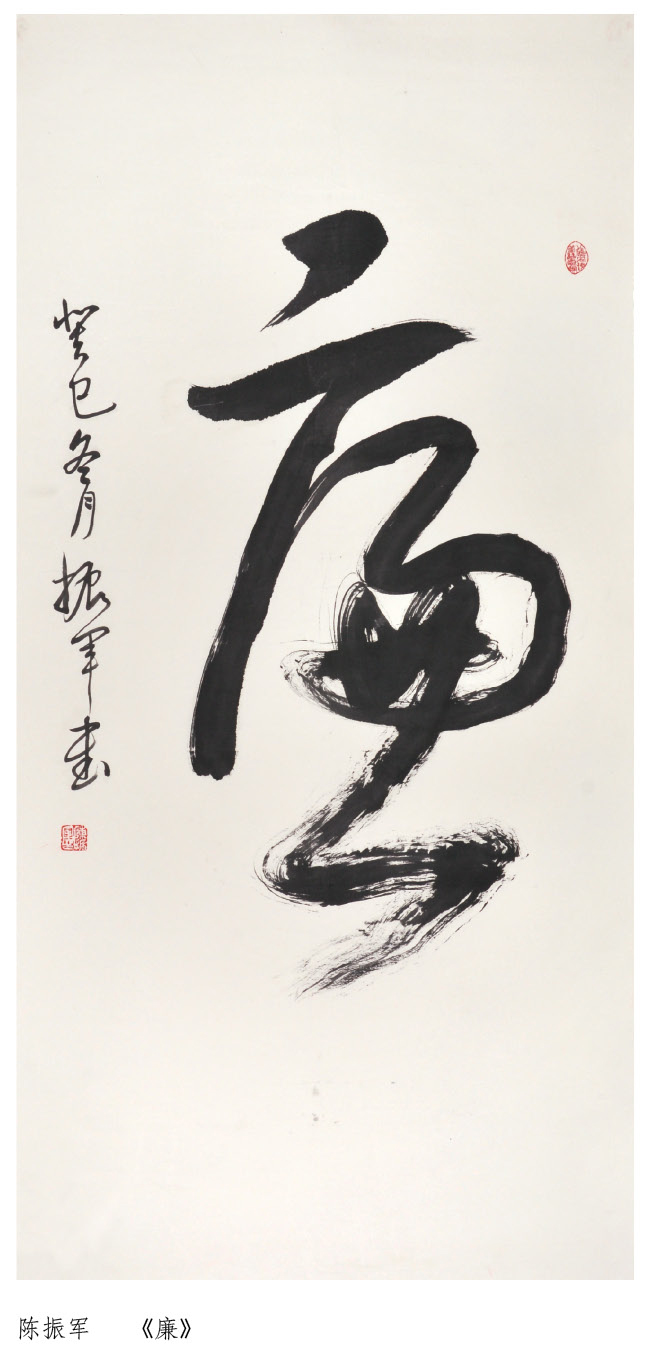 廉
癸巳冬月振军书
陈振军 《廉》